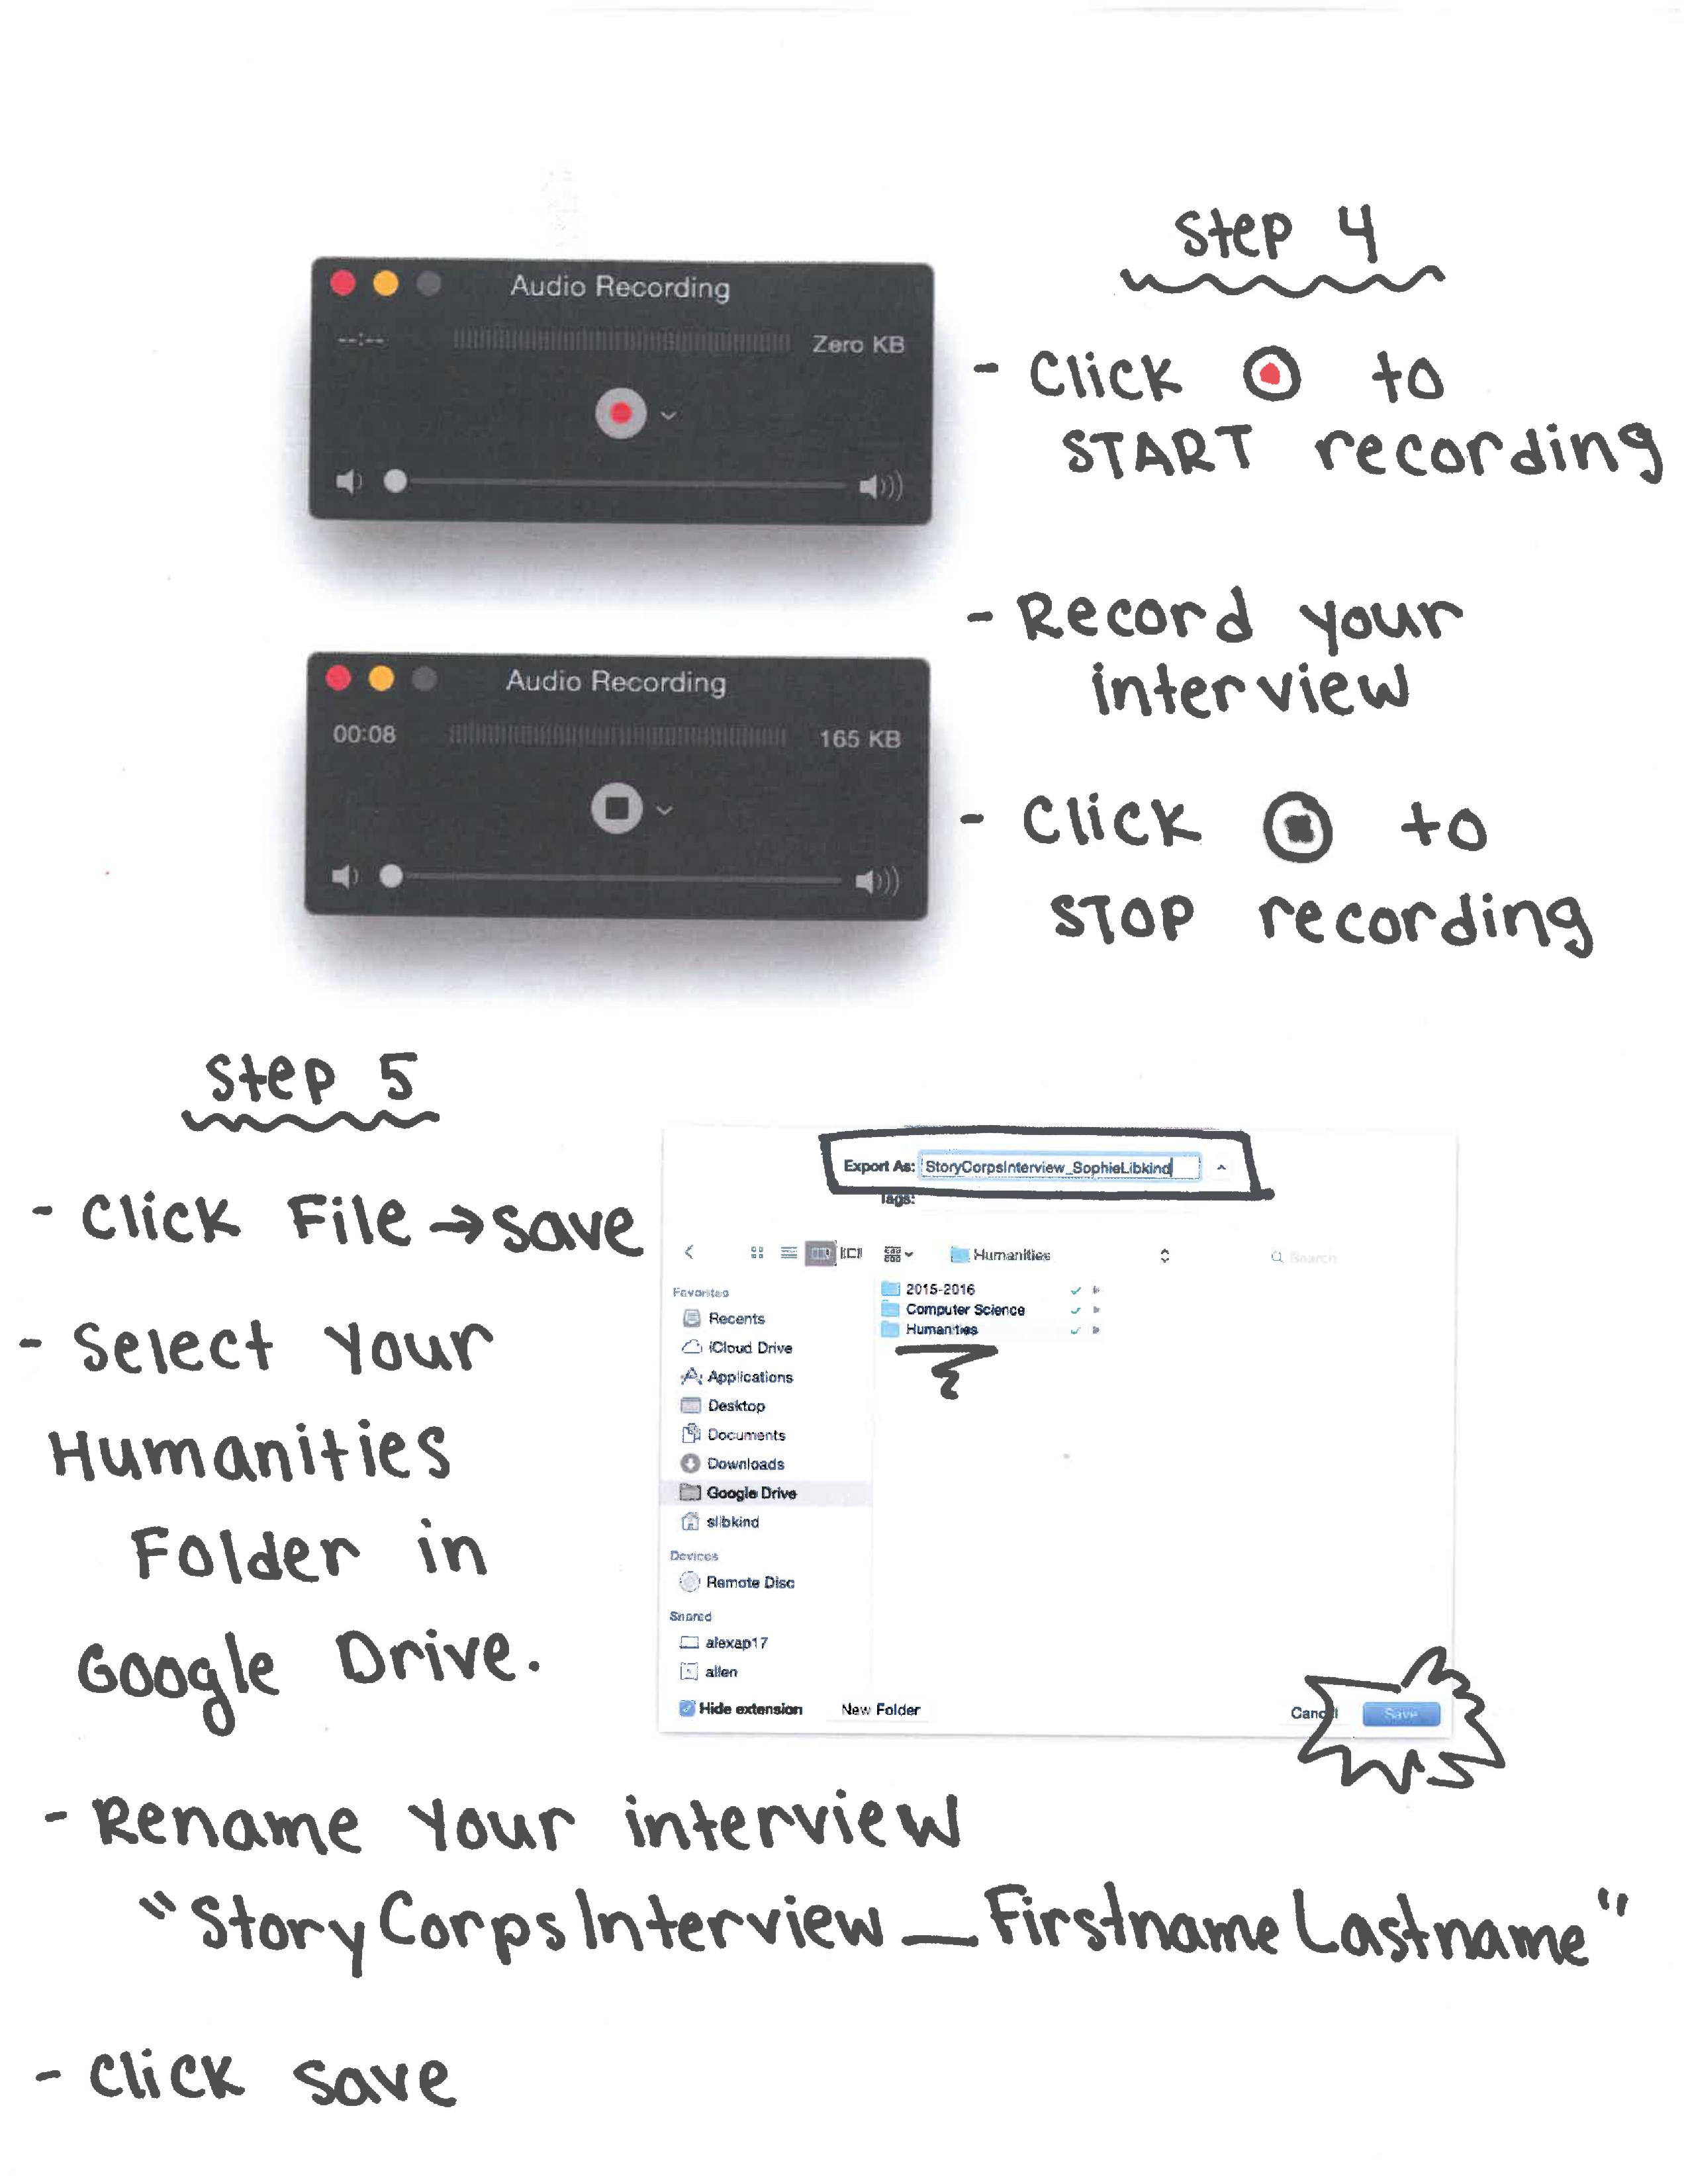 Step 4
Audio Recording
--:--
Zero KB
- Click to
START recording
- Record your
interview
Audio Recording
00:08
165 KB
- Click to
STOP recording
Step 5
- Click File → save
- Select your
Humanities
Folder in
Google Drive.
Export As: StoryCorpsInterview_SophieLibkind
Tags:
Humanities
Search
Favorites
Recents
iCloud Drive
Applications
Desktop
Documents
Downloads
Google Drive
slibkind
Devices
Remote Disc
Shared
alexap17
allen
2015-2016
Computer Science
Humanities
Hide extension
New Folder
Cancel
Save
- Rename your interview
"StoryCorpsInterview_FirstnameLastname"
- Click save